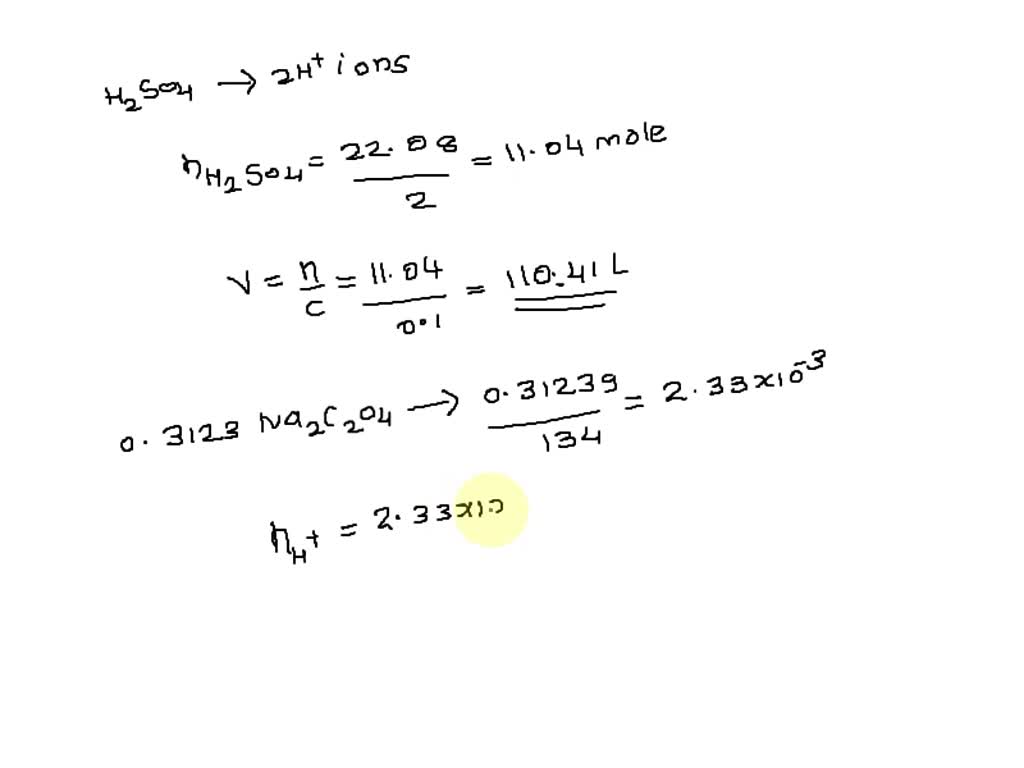 H₂SO₄ → 2H⁺ ions
nH₂SO₄ = 22.08/2 = 11.04 mole
V = n/c = 11.04/0.1 = 110.41 L
0.3123 Na₂C₂O₄ → 0.3123g/134 = 2.33×10⁻³
nH⁺ = 2.33×10